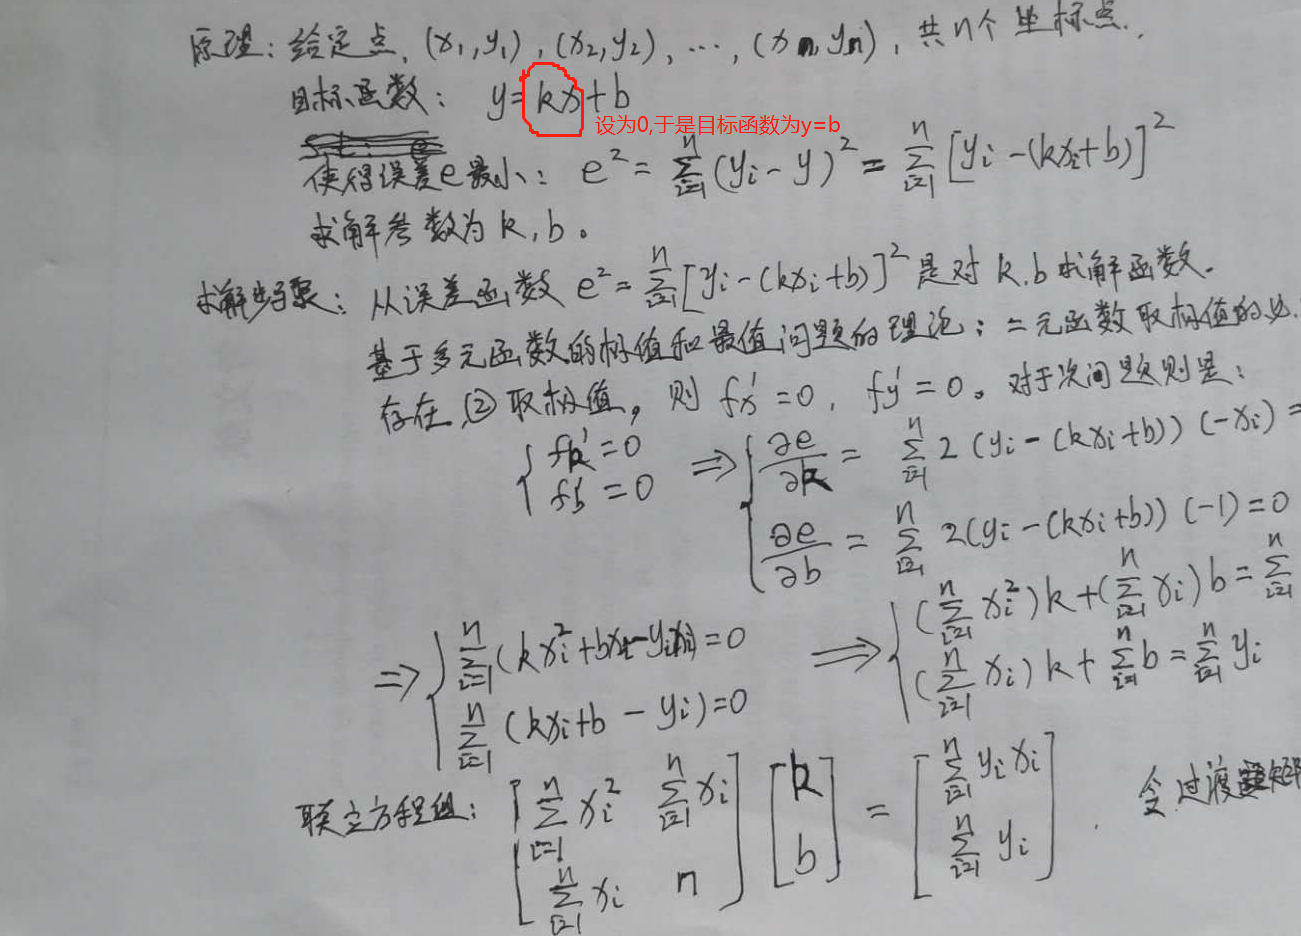 原理：给定点，(x₁,y₁)，(x₂,y₂)，…，(xₙ,yₙ)，共n个坐标点.
目标函数：y=kx+b
设为0,于是目标函数为y=b
使得误差e最小：e²=∑ⁿᵢ₌₁(yᵢ-y)²=∑ⁿᵢ₌₁[yᵢ-(kxᵢ+b)]²
求解参数为k,b。
求解步骤：从误差函数e²=∑ⁿᵢ₌₁[yᵢ-(kxᵢ+b)]²是对k.b求解函数.
基于多元函数的极值和最值问题的理论；二元函数取极值的必
存在,②取极值，则fx'=0，fy'=0。对于次问题则是：
{fk'=0 fb'=0 ⇒ {∂e/∂k=∑ⁿᵢ₌₁2(yᵢ-(kxᵢ+b))(-xᵢ)=
∂e/∂b=∑ⁿᵢ₌₁2(yᵢ-(kxᵢ+b))(-1)=0
⇒{∑ⁿᵢ₌₁(kxᵢ²+bxᵢ-yᵢxᵢ)=0 ⇒ {(∑ⁿᵢ₌₁xᵢ²)k+(∑ⁿᵢ₌₁xᵢ)b=∑ⁿᵢ₌₁
∑ⁿᵢ₌₁(kxᵢ+b-yᵢ)=0 (∑ⁿᵢ₌₁xᵢ)k+∑ⁿᵢ₌₁b=∑ⁿᵢ₌₁yᵢ
联立方程组：[∑ⁿᵢ₌₁xᵢ² ∑ⁿᵢ₌₁xᵢ] [k] = [∑ⁿᵢ₌₁yᵢxᵢ] . 令过渡矩阵
[∑ⁿᵢ₌₁xᵢ n] [b] [∑ⁿᵢ₌₁yᵢ]